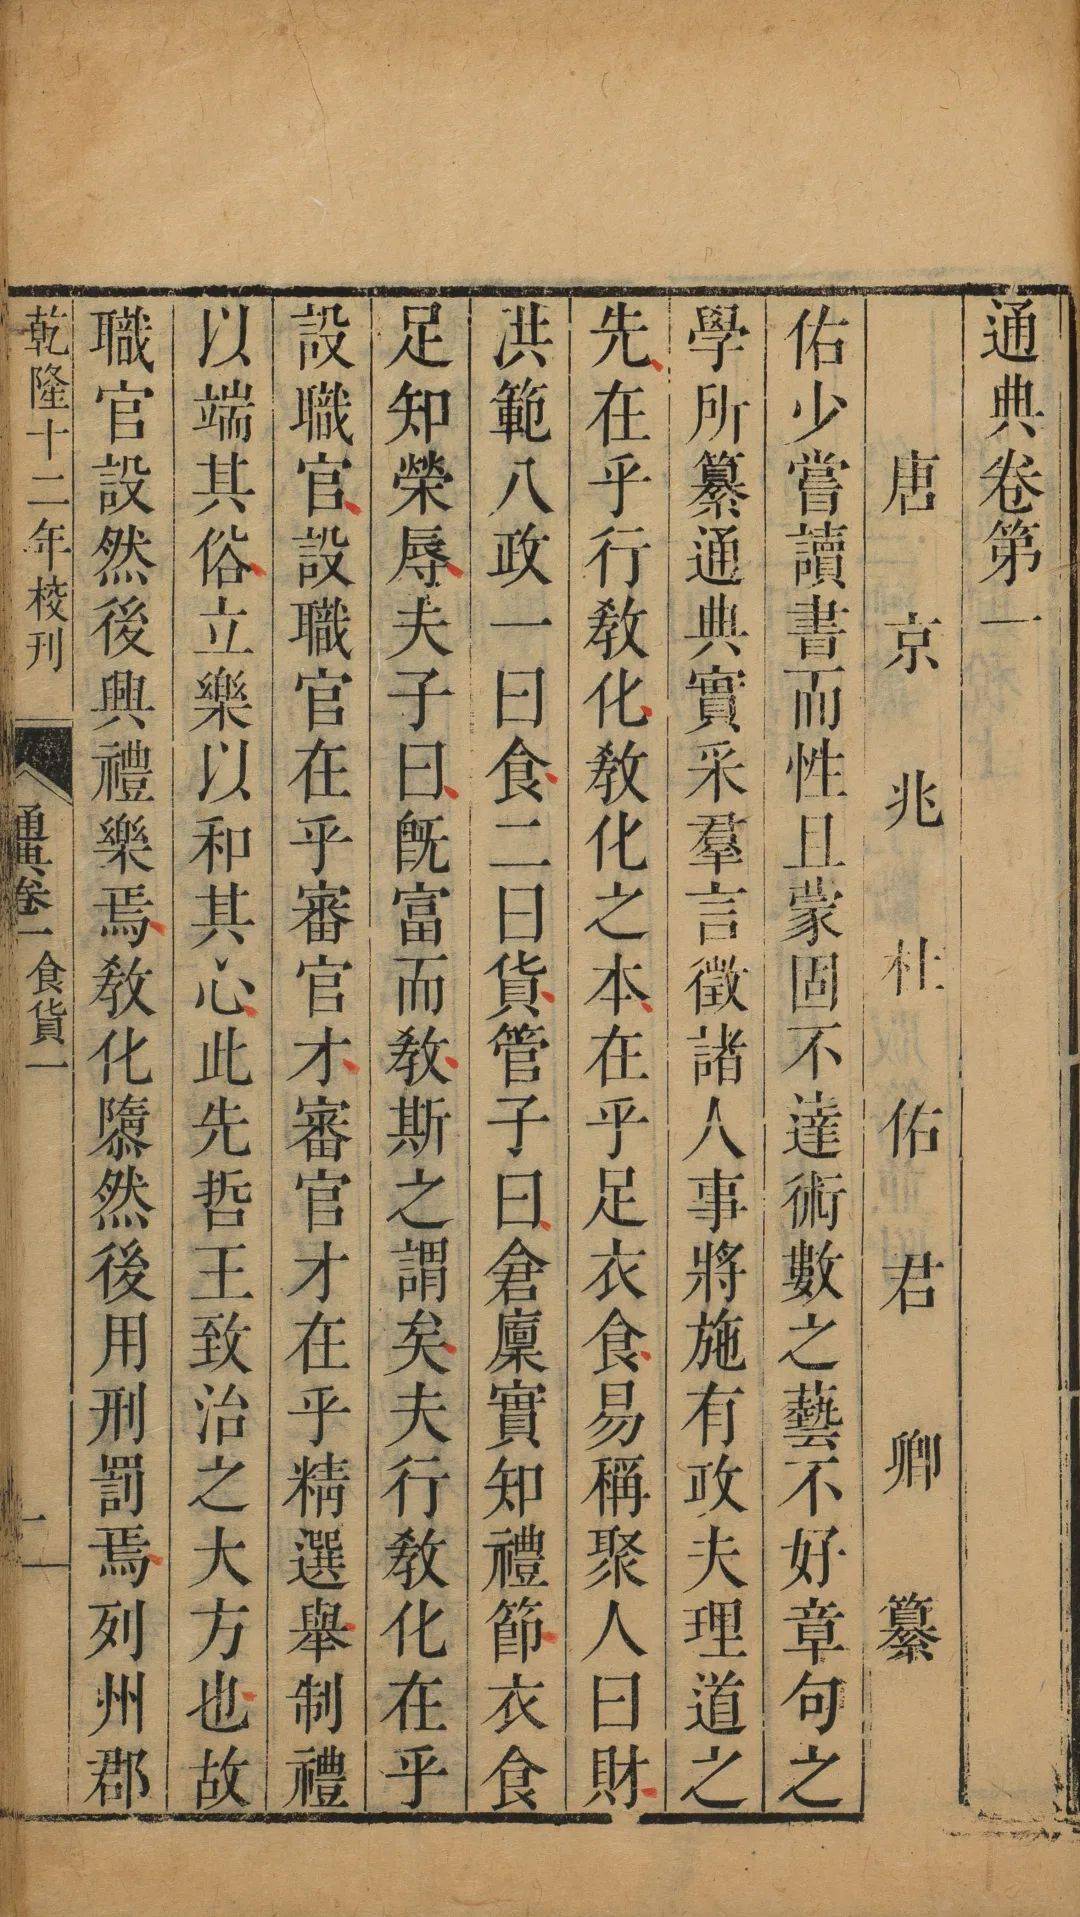 通典卷第一
唐京兆杜佑君卿纂
佑少嘗讀書而性且蒙固不達術數之藝不好章句之
學所纂通典實采羣言徵諸人事將施有政夫理道之
先在乎行教化教化之本在乎足衣食易稱聚人曰財
洪範八政一曰食二曰貨管子曰倉廩實知禮節衣食
足知榮辱夫子曰既富而教斯之謂矣夫行教化在乎
設職官設職官在乎審官才審官才在乎精選舉制禮
以端其俗立樂以和其心此先哲王致治之大方也故
職官設然後興禮樂焉教化隳然後用刑罰焉列州郡
乾隆十二年校刊
通典卷一食貨一